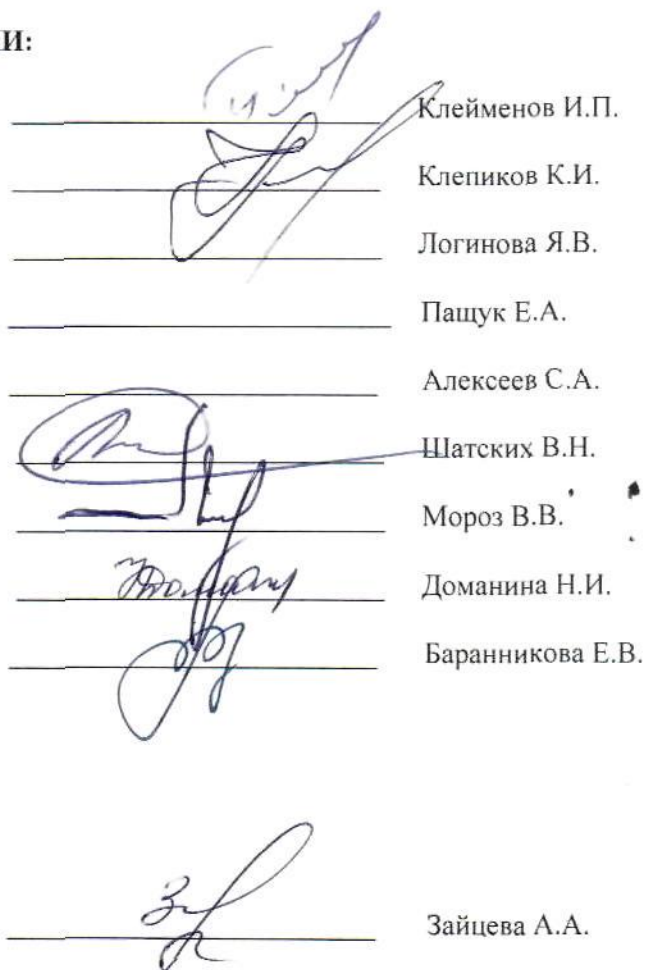 И:
Клейменов И.П.
Клепиков К.И.
Логинова Я.В.
Пащук Е.А.
Алексеев С.А.
Шатских В.Н.
Мороз В.В.
Доманина Н.И.
Баранникова Е.В.
Зайцева А.А.